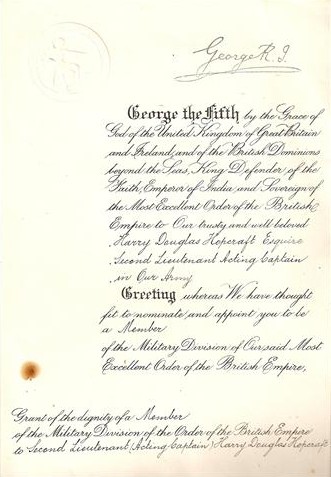 George R. I.
George the Fifth by the Grace of
God of the United Kingdom of Great Britain
and Ireland and of the British Dominions
beyond the Seas, King Defender of the
Faith, Emperor of India and Sovereign of
the Most Excellent Order of the British
Empire to Our trusty and well beloved
Harry Douglas Hopcraft Esquire
Second Lieutenant Acting Captain
in Our Army
Greeting whereas We have thought
fit to nominate and appoint you to be
a Member
of the Military Division of Our said Most
Excellent Order of the British Empire,
Grant of the dignity of a Member
of the Military Division of the Order of the British Empire
to Second Lieutenant (Acting Captain) Harry Douglas Hopcraft